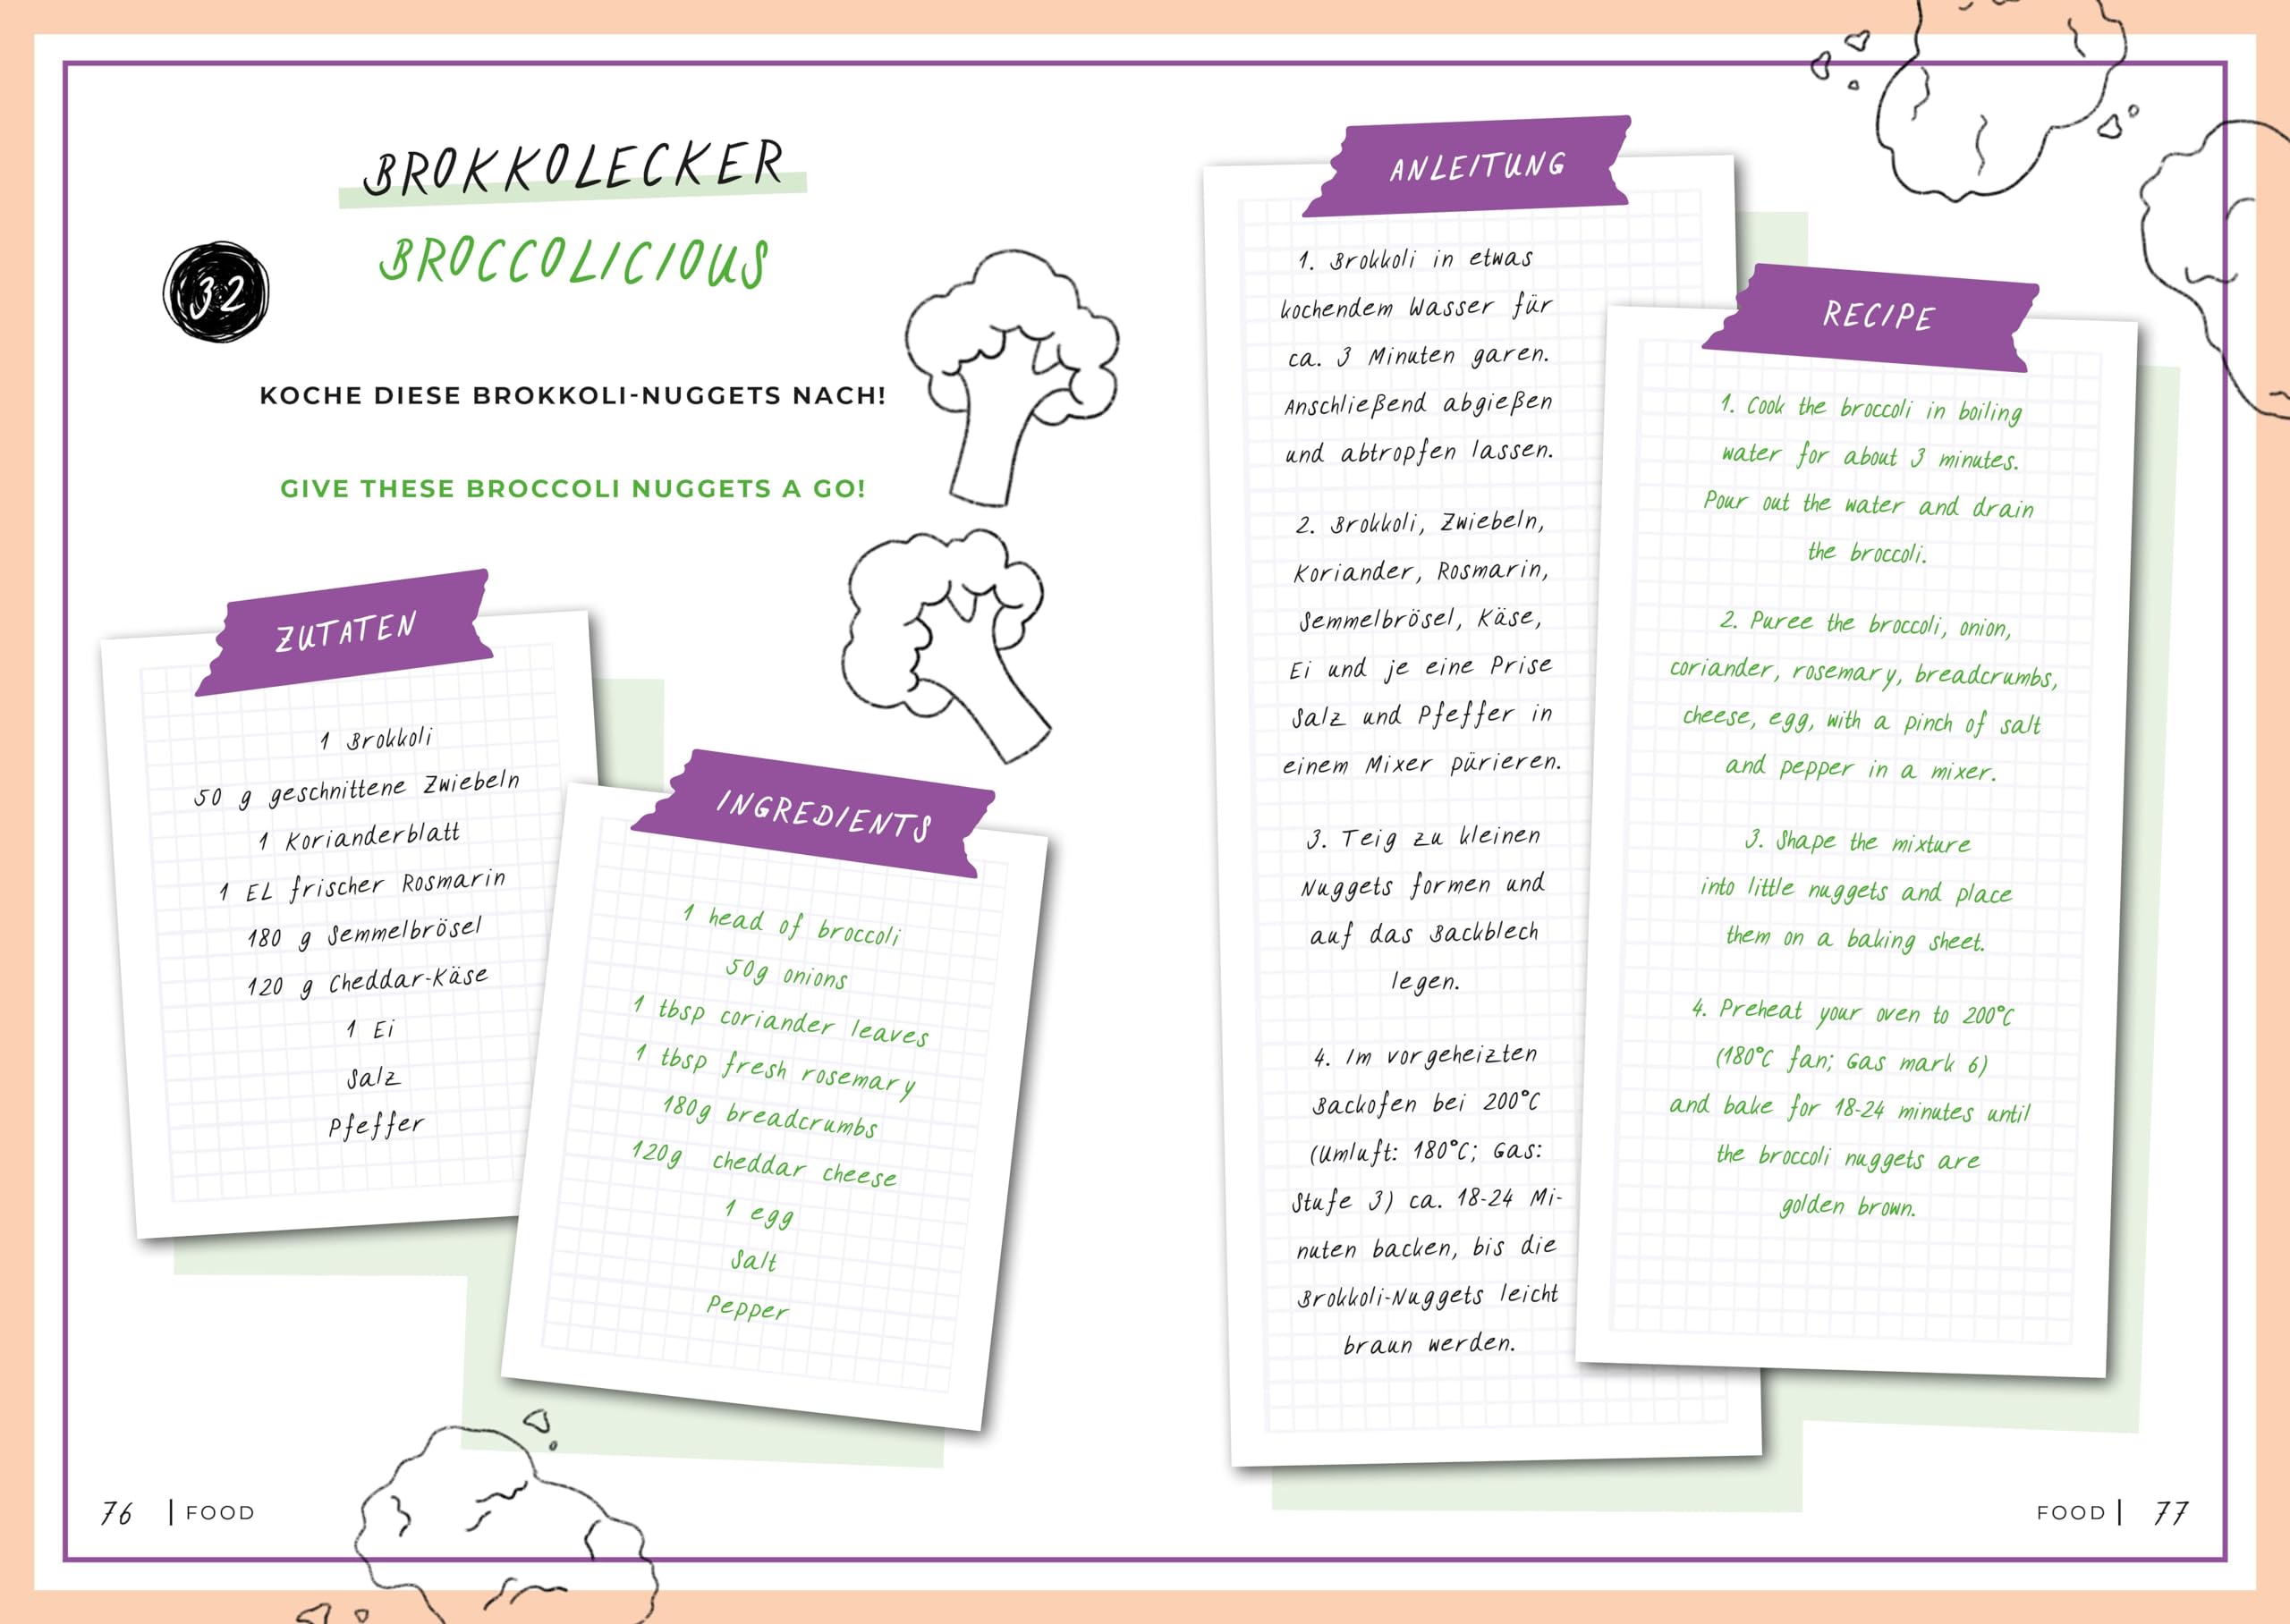 BROKKOLECKER
BROCCOLICIOUS
32
KOCHE DIESE BROKKOLI-NUGGETS NACH!
GIVE THESE BROCCOLI NUGGETS A GO!
ZUTATEN
1 Brokkoli
50 g geschnittene Zwiebeln
1 Korianderblatt
1 EL frischer Rosmarin
180 g Semmelbrösel
120 g Cheddar-Käse
1 Ei
Salz
Pfeffer
INGREDIENTS
1 head of broccoli
50g onions
1 tbsp coriander leaves
1 tbsp fresh rosemary
180g breadcrumbs
120g cheddar cheese
1 egg
Salt
Pepper
76 | FOOD
ANLEITUNG
1. Brokkoli in etwas
kochendem Wasser für
ca. 3 Minuten garen.
Anschließend abgießen
und abtropfen lassen.
2. Brokkoli, Zwiebeln,
Koriander, Rosmarin,
Semmelbrösel, Käse,
Ei und je eine Prise
Salz und Pfeffer in
einem Mixer pürieren.
3. Teig zu kleinen
Nuggets formen und
auf das Backblech
legen.
4. Im vorgeheizten
Backofen bei 200°C
(Umluft: 180°C; Gas:
Stufe 3) ca. 18-24 Mi-
nuten backen, bis die
Brokkoli-Nuggets leicht
braun werden.
RECIPE
1. Cook the broccoli in boiling
water for about 3 minutes.
Pour out the water and drain
the broccoli.
2. Puree the broccoli, onion,
coriander, rosemary, breadcrumbs,
cheese, egg, with a pinch of salt
and pepper in a mixer.
3. Shape the mixture
into little nuggets and place
them on a baking sheet.
4. Preheat your oven to 200°C
(180°C fan; Gas mark 6)
and bake for 18-24 minutes until
the broccoli nuggets are
golden brown.
FOOD | 77